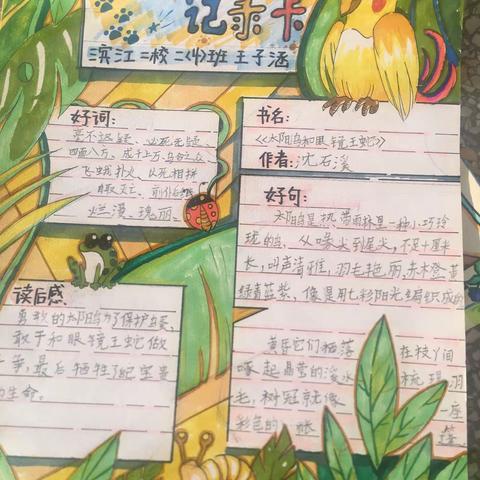 记录卡
滨江二校二(4)班 王子涵
好词:
毫不迟疑、必死无疑、
四面八方、成千上万、乌合之众
飞蛾扑火、以死相拼
自取灭亡、前仆后继
烂漫、瑰丽、
书名:
《太阳鸟和眼镜王蛇》
作者:沈石溪
好句:
太阳鸟是热带雨林里一种小巧玲
珑的鸟、从喙尖到尾尖,不足十厘米
长,叫声清雅,羽毛艳丽,赤橙黄
绿青蓝紫,像是用七彩阳光编织成的
黄昏它们栖落 在枝丫间
啄起晶莹的溪水 梳理羽
毛,树冠就像 一座
彩色的 帐 篷
读后感
勇敢的太阳鸟为了保护
敢于和眼镜王蛇做
争,最后牺牲了宝贵
生命。